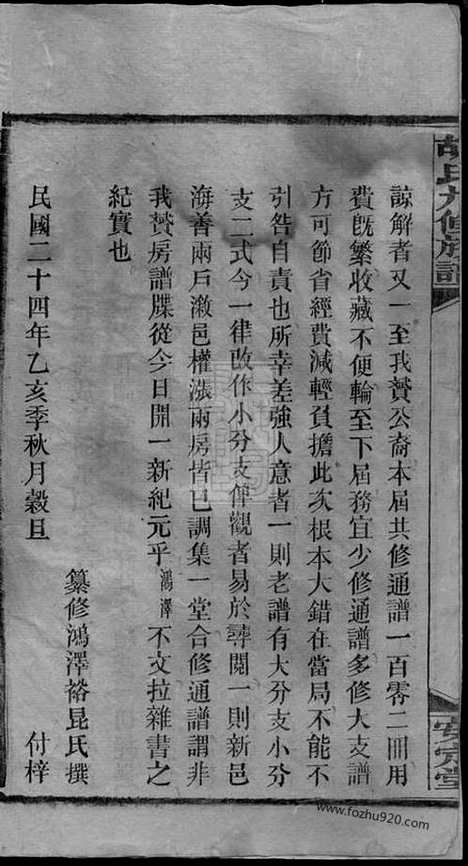 胡氏九修族譜
安定堂
諒解者又一至我贊公裔本屆共修通譜一百零二冊用
費旣繁收藏不便輪至下屆務宜少修通譜多修大支譜
方可節省經費減輕負擔此次根本大錯在當局不能不
引咎自責也所幸差強人意者一則老譜有大分支小分
支二式今一律改作小分支俾觀者易於尋閱一則新邑
海善兩戶漵邑權漲兩房皆已調集一堂合修通譜謂非
我贊房譜牒從今日開一新紀元乎鴻澤不文拉雜書之
紀實也
民國二十四年乙亥季秋月穀旦
纂修鴻澤裕昆氏撰
付梓
www.fozhu920.com